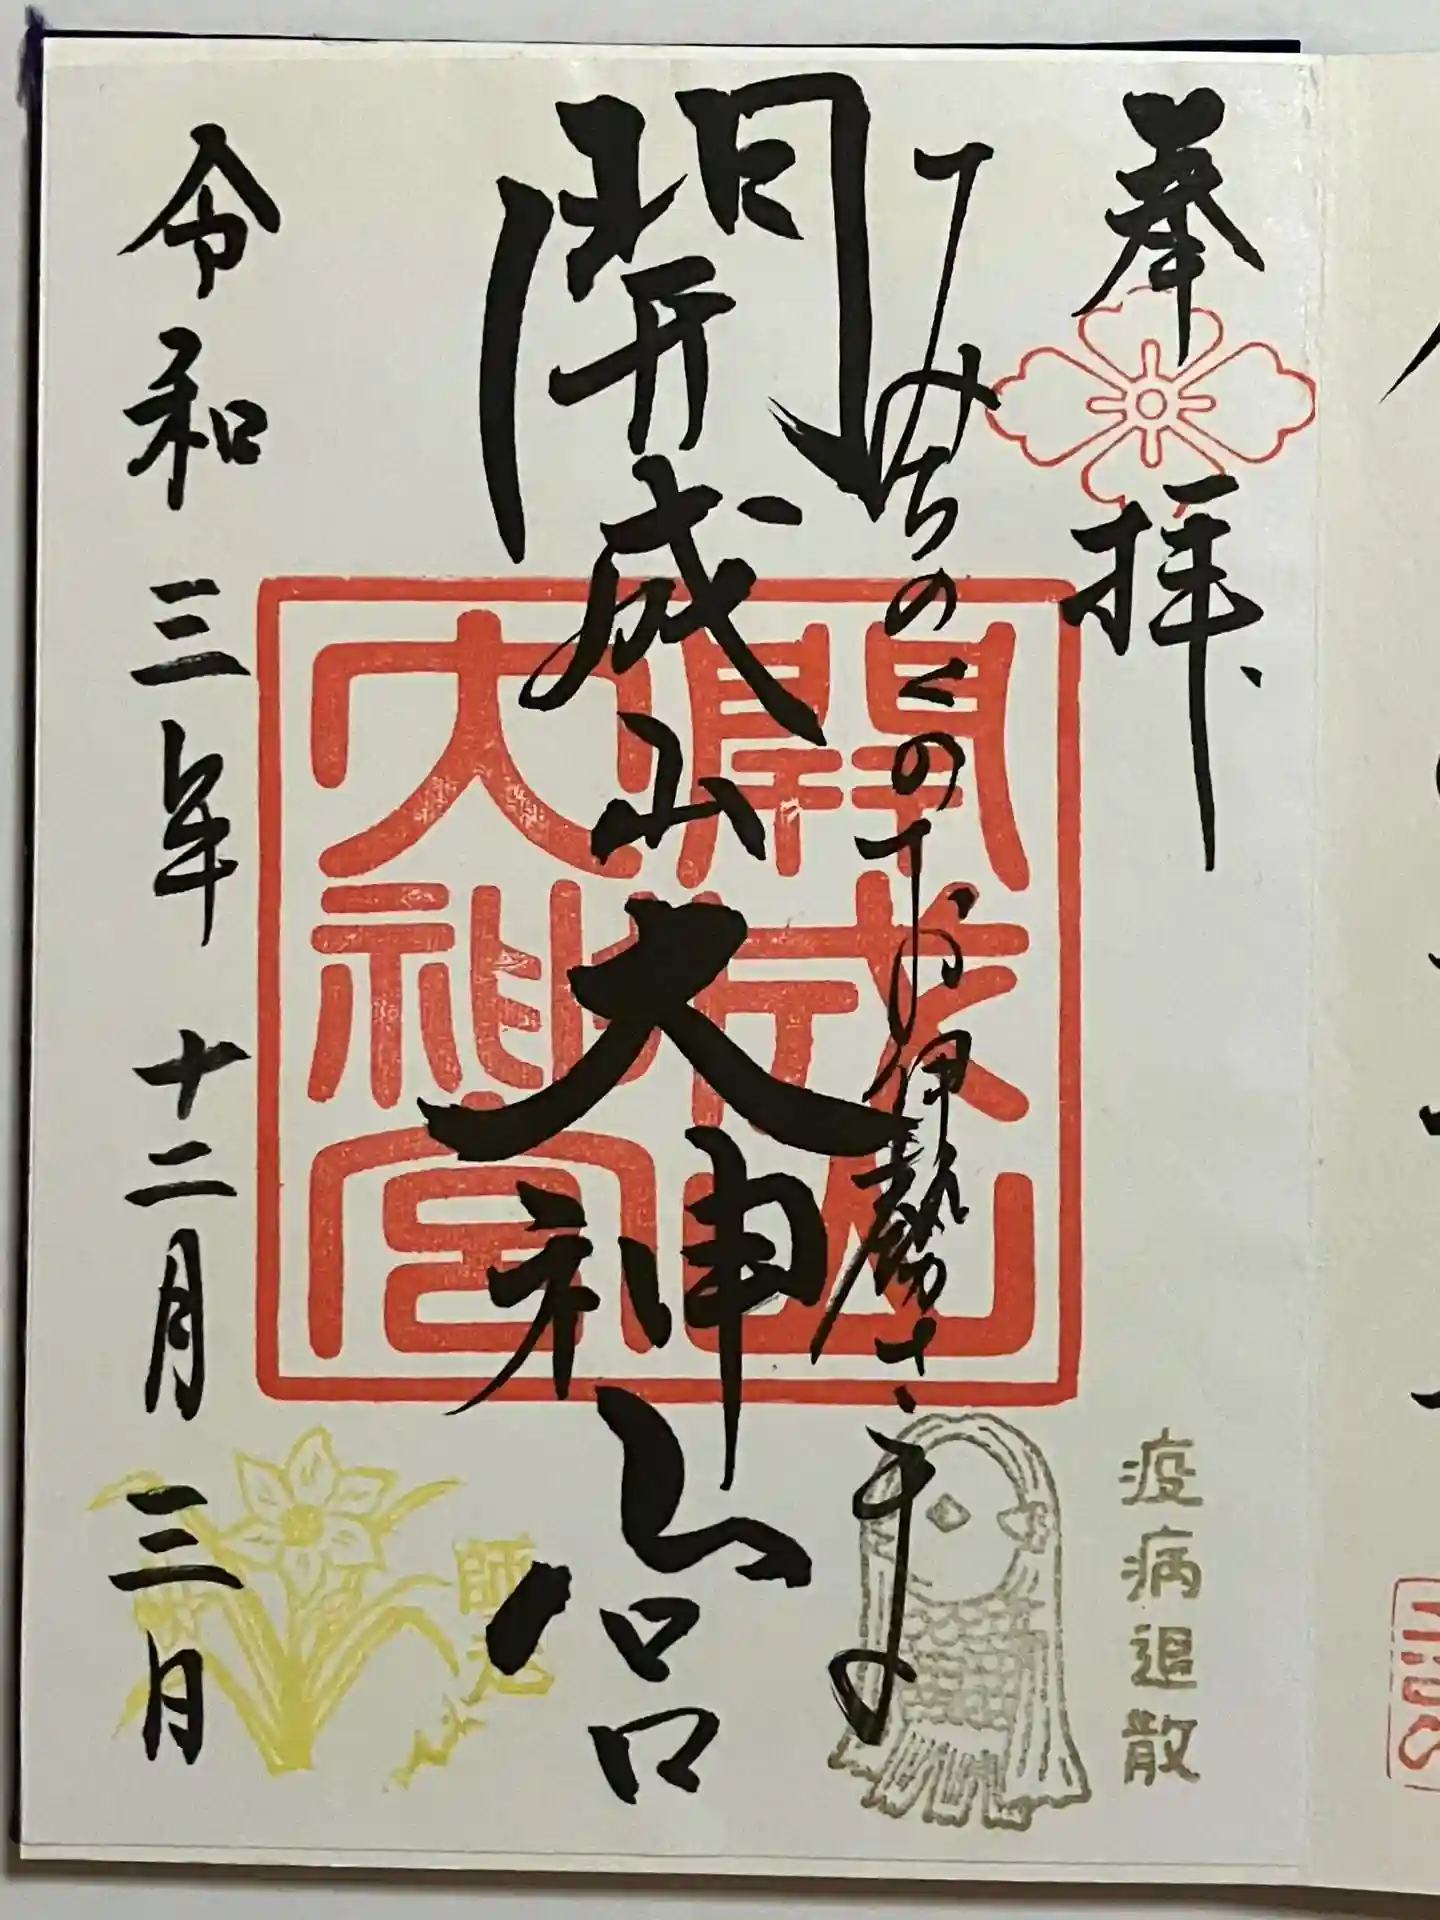 奉拝
みちのくのお伊勢さま
開成山大神宮
令和三年十二月三日
開成山
大神宮
疫病退散
師走